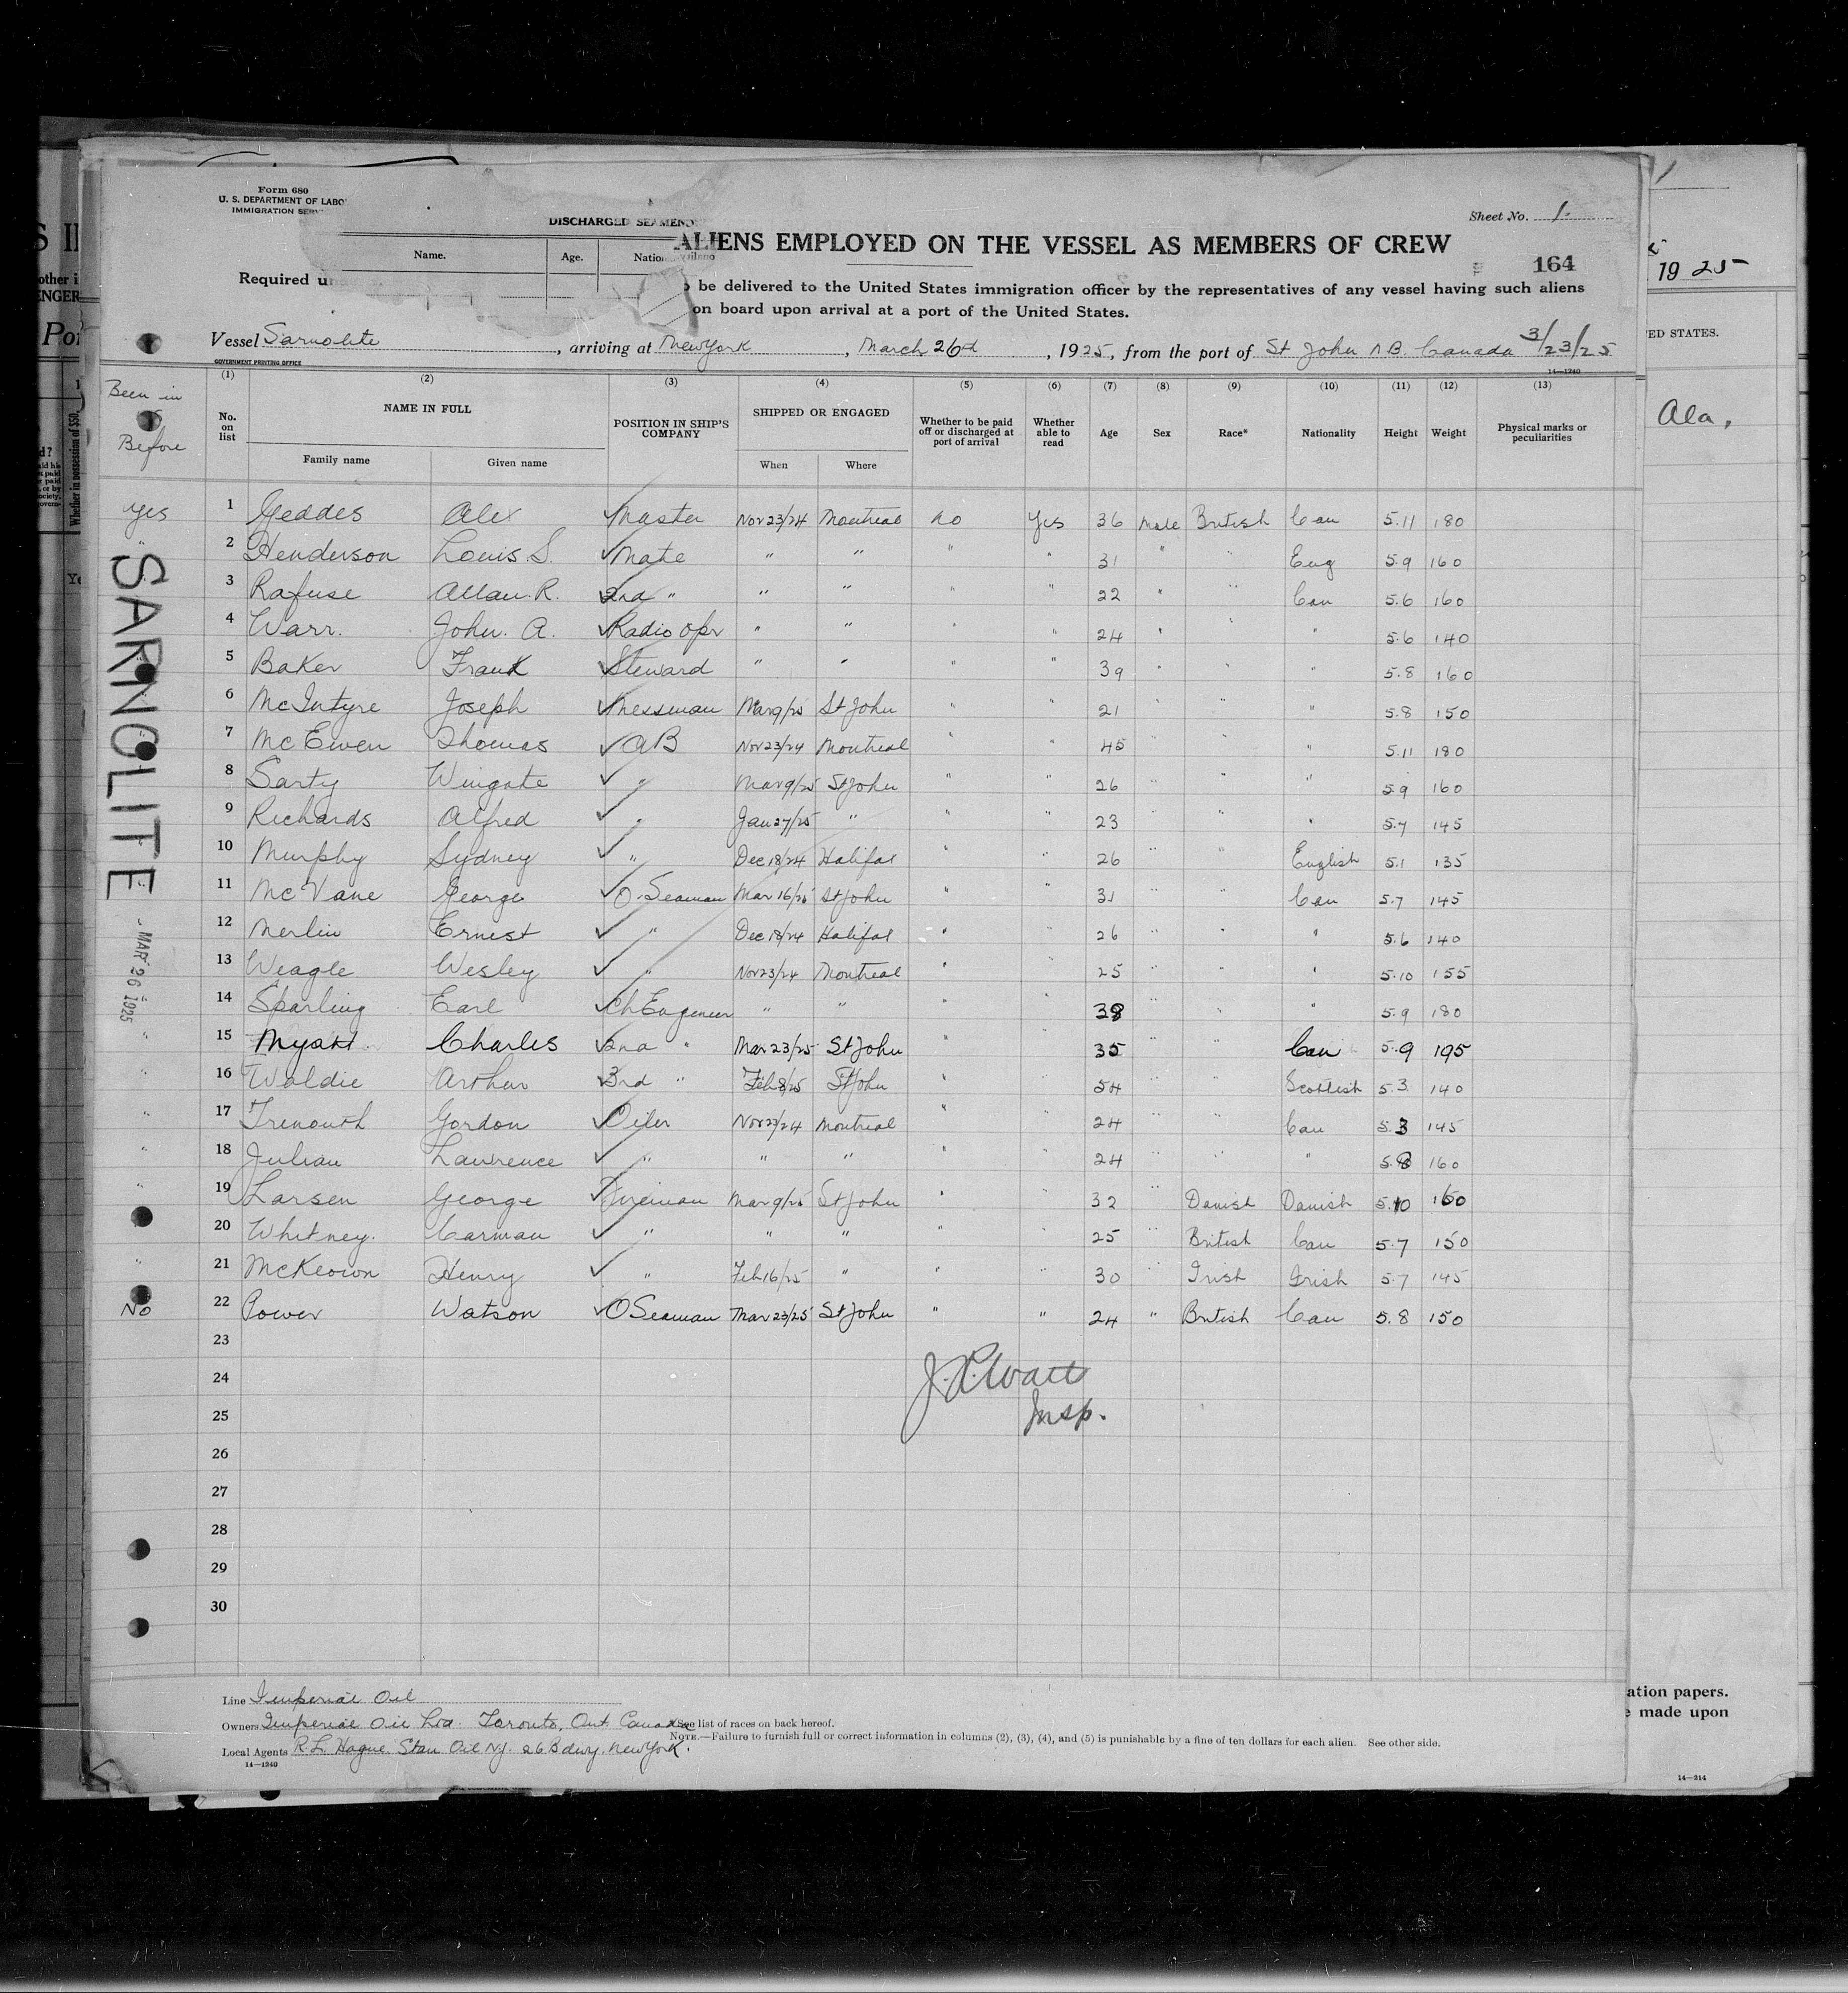 Form 680
U. S. DEPARTMENT OF LABO
IMMIGRATION SERV
DISCHARGED SEAMEN
Name. Age. Nation
Sheet No. 1.
ALIENS EMPLOYED ON THE VESSEL AS MEMBERS OF CREW
164
Required u
be delivered to the United States immigration officer by the representatives of any vessel having such aliens
on board upon arrival at a port of the United States.
Vessel Sarnolite, arriving at New York, March 26th, 1925, from the port of St John N.B. Canada 3/23/25
GOVERNMENT PRINTING OFFICE
14—1240
Been in
Before
(1) (2) (3) (4) (5) (6) (7) (8) (9) (10) (11) (12) (13)
No. on list NAME IN FULL POSITION IN SHIP'S COMPANY SHIPPED OR ENGAGED Whether to be paid off or discharged at port of arrival Whether able to read Age Sex Race* Nationality Height Weight Physical marks or peculiarities
Family name Given name When Where
yes 1 Geddes Alex Master Nov 23/24 Montreal no Yes 36 male British Can 5.11 180
" 2 Henderson Louis S. Mate " " " " 31 " " Eng 5.9 160
3 Rafuse Allan. R. 2nd " " " " " 22 " " Can 5.6 160
4 Warr. John. A. Radio opr " " " " 24 " " " 5.6 140
5 Baker Frank Steward " " " " 39 " " " 5.8 160
6 McIntyre Joseph Messman Mar 9/25 St John " " 21 " " " 5.8 150
7 McEwen Thomas AB Nov 23/24 Montreal " " 45 " " " 5.11 180
8 Sarty Wingate " Mar 9/25 St John " " 26 " " " 5.9 160
9 Richards Alfred " Jan 27/25 " " " 23 " " " 5.7 145
10 Murphy Sydney " Dec 18/24 Halifax " " 26 " " English 5.1 135
11 McVane George O. Seaman Mar 16/25 St John " " 31 " " Can 5.7 145
12 Merlin Ernest " Dec 18/24 Halifax " " 26 " " " 5.6 140
13 Weagle Wesley " Nov 23/24 Montreal " " 25 " " " 5.10 155
14 Sparling Earl Ch Engineer " " " " 38 " " " 5.9 180
" 15 Myatt Charles 2nd " Mar 23/25 St John " " 35 " " Can 5.9 195
" 16 Waldie Arthur 3rd " Feb 8/25 St John " " 54 " " Scottish 5.3 140
" 17 Trenouth Gordon Oiler Nov 23/24 Montreal " " 24 " " Can 5.3 145
" 18 Julian Lawrence " " " " " 24 " " " 5.8 160
" 19 Larsen George Fireman Mar 9/25 St John " " 32 " Danish Danish 5.10 160
20 Whitney. Carman " " " " " 25 " British Can 5.7 150
" 21 McKeown Henry " Feb 16/25 " " " 30 " Irish Irish 5.7 145
No 22 Power Watson O Seaman Mar 23/25 St John " " 24 " British Can 5.8 150
23
24
25
26
27
28
29
30
Insp.
SARNOLITE
MAR 26 1925
Line Imperial Oil
Owners Imperial Oil Ltd. Toronto, Ont Canada
*See list of races on back hereof.
NOTE.—Failure to furnish full or correct information in columns (2), (3), (4), and (5) is punishable by a fine of ten dollars for each alien. See other side.
Local Agents R. L. Hague. Stan Oil NJ. 26 Bdwy. New York.
14—1240
1925
ED STATES.
Ala,
ation papers.
e made upon
14—214
Whether in possession of $50,